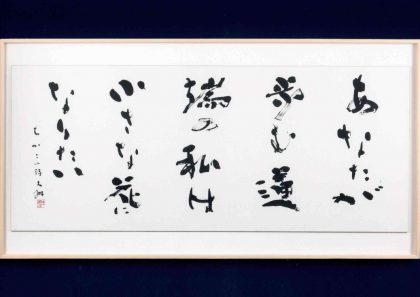 あなたが
歩む道
端の私は
小さな花に
なりたい